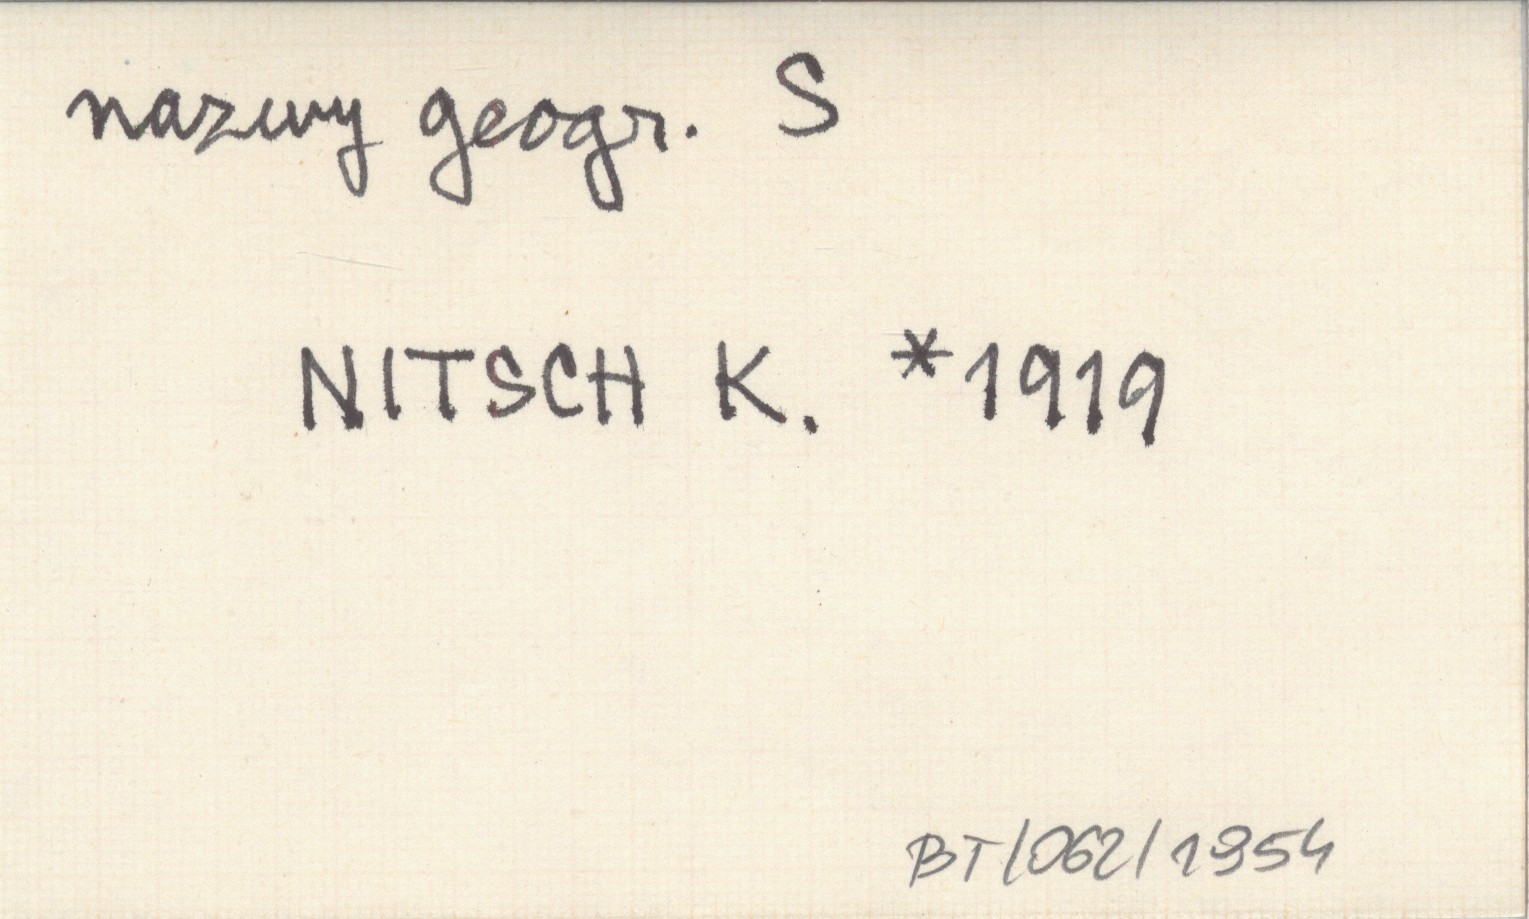 nazwy geogr. S
NITSCH K. *1919
BT/062/1954